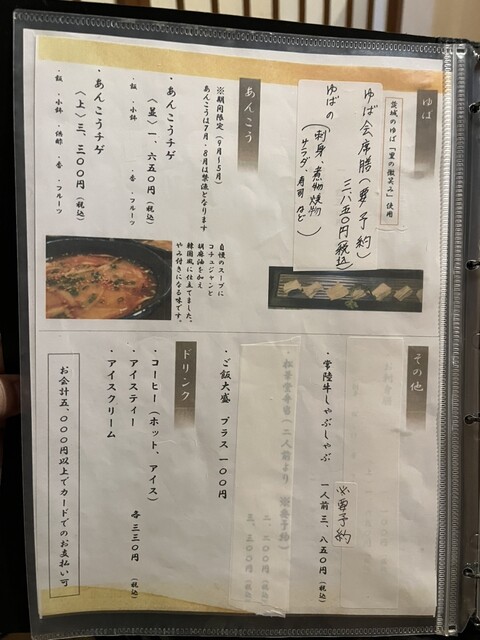 ゆば
茨城のゆば「里の微笑み」使用
ゆば会席膳(要予約)
三、八五〇円(税込)
ゆばの(刺身、煮物、焼物
サラダ、寿司など)
あんこう
※期間限定(9月~5月)
あんこうは7月・8月は禁漁となります
・あんこうチゲ
〈並〉一、六五〇円(税込)
・飯 ・小鉢 ・香 ・フルーツ
・あんこうチゲ
〈上〉三、三〇〇円(税込)
・飯 ・小鉢 ・酢物 ・香 ・フルーツ
自慢のスープに
コチュジャンと
胡麻油を加え
韓国風に仕立てました。
やみ付きになる味です。
その他
必要予約
・常陸牛しゃぶしゃぶ 一人前三、八五〇円(税込)
二、二〇〇円(税込)
三、三〇〇円(税込)
・ご飯大盛 プラス一〇〇円
ドリンク
・コーヒー(ホット、アイス)
・アイスティー 各三三〇円(税込)
・アイスクリーム
お会計五、〇〇〇円以上でカードでのお支払い可